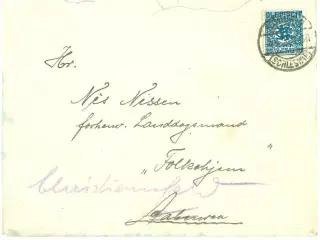 SCHLESWIG
Hr.
Nis Nissen
forhenv. Landdagsmand
"Folkehjem"
Christiansfeld
Aabenraa